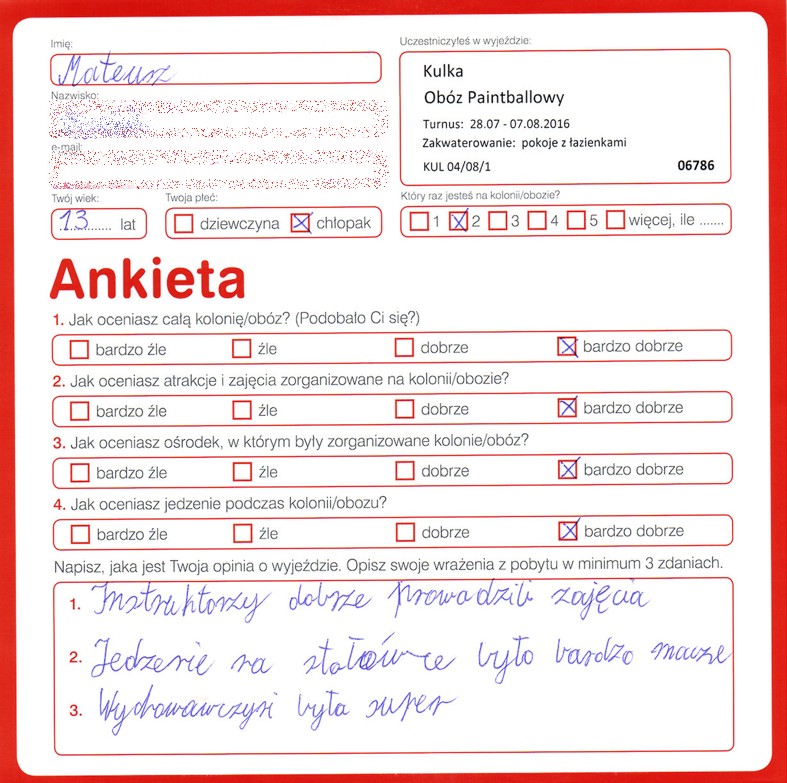 Imię:
Mateusz
Nazwisko:
e-mail:
Uczestniczyłeś w wyjeździe:
Kulka
Obóz Paintballowy
Turnus: 28.07 - 07.08.2016
Zakwaterowanie: pokoje z łazienkami
KUL 04/08/1 06786
Twój wiek:
13 lat
Twoja płeć:
dziewczyna chłopak
Który raz jesteś na kolonii/obozie?
1 2 3 4 5 więcej, ile .......
Ankieta
1. Jak oceniasz całą kolonię/obóz? (Podobało Ci się?)
bardzo źle źle dobrze bardzo dobrze
2. Jak oceniasz atrakcje i zajęcia zorganizowane na kolonii/obozie?
bardzo źle źle dobrze bardzo dobrze
3. Jak oceniasz ośrodek, w którym były zorganizowane kolonie/obóz?
bardzo źle źle dobrze bardzo dobrze
4. Jak oceniasz jedzenie podczas kolonii/obozu?
bardzo źle źle dobrze bardzo dobrze
Napisz, jaka jest Twoja opinia o wyjeździe. Opisz swoje wrażenia z pobytu w minimum 3 zdaniach.
1. Instruktorzy dobrze prowadzili zajęcia
2. Jedzenie na stołówce było bardzo
3. Wychowawczyni była super